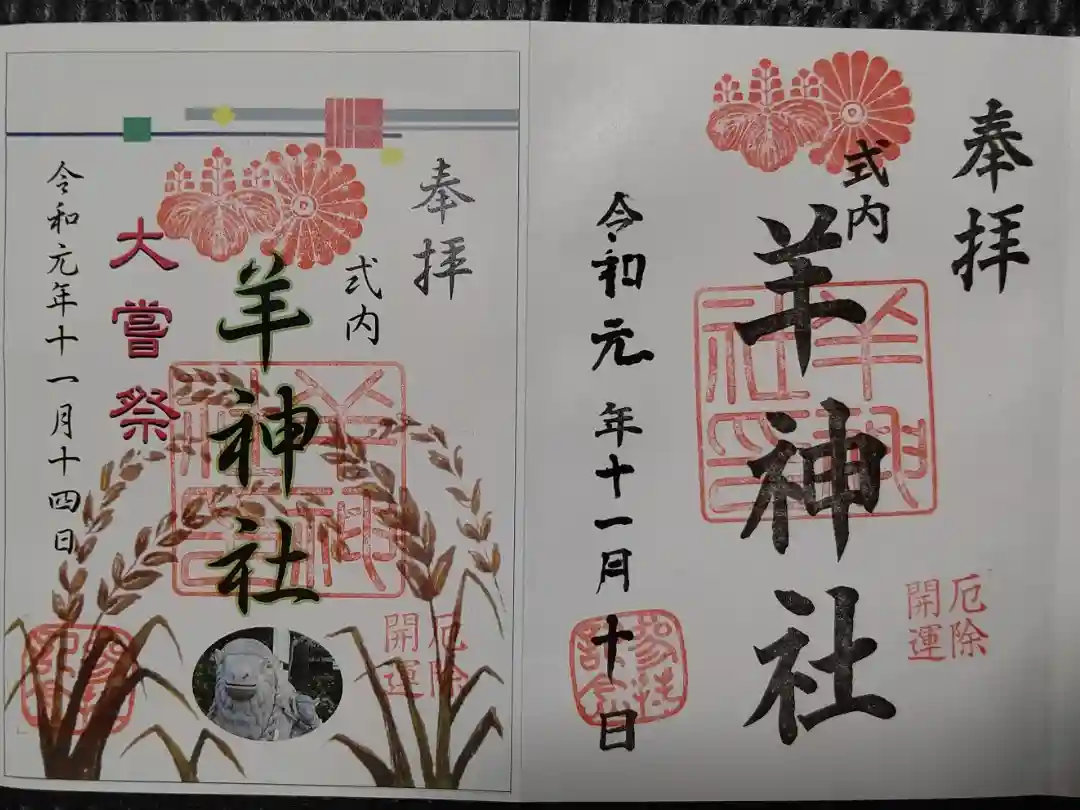 奉拝
式内
羊神社
令和元年十一月十日
羊神社印
厄除
開運
参拝記念
奉拝
式内
羊神社
大嘗祭
令和元年十一月十四日
羊神社印
厄除
開運